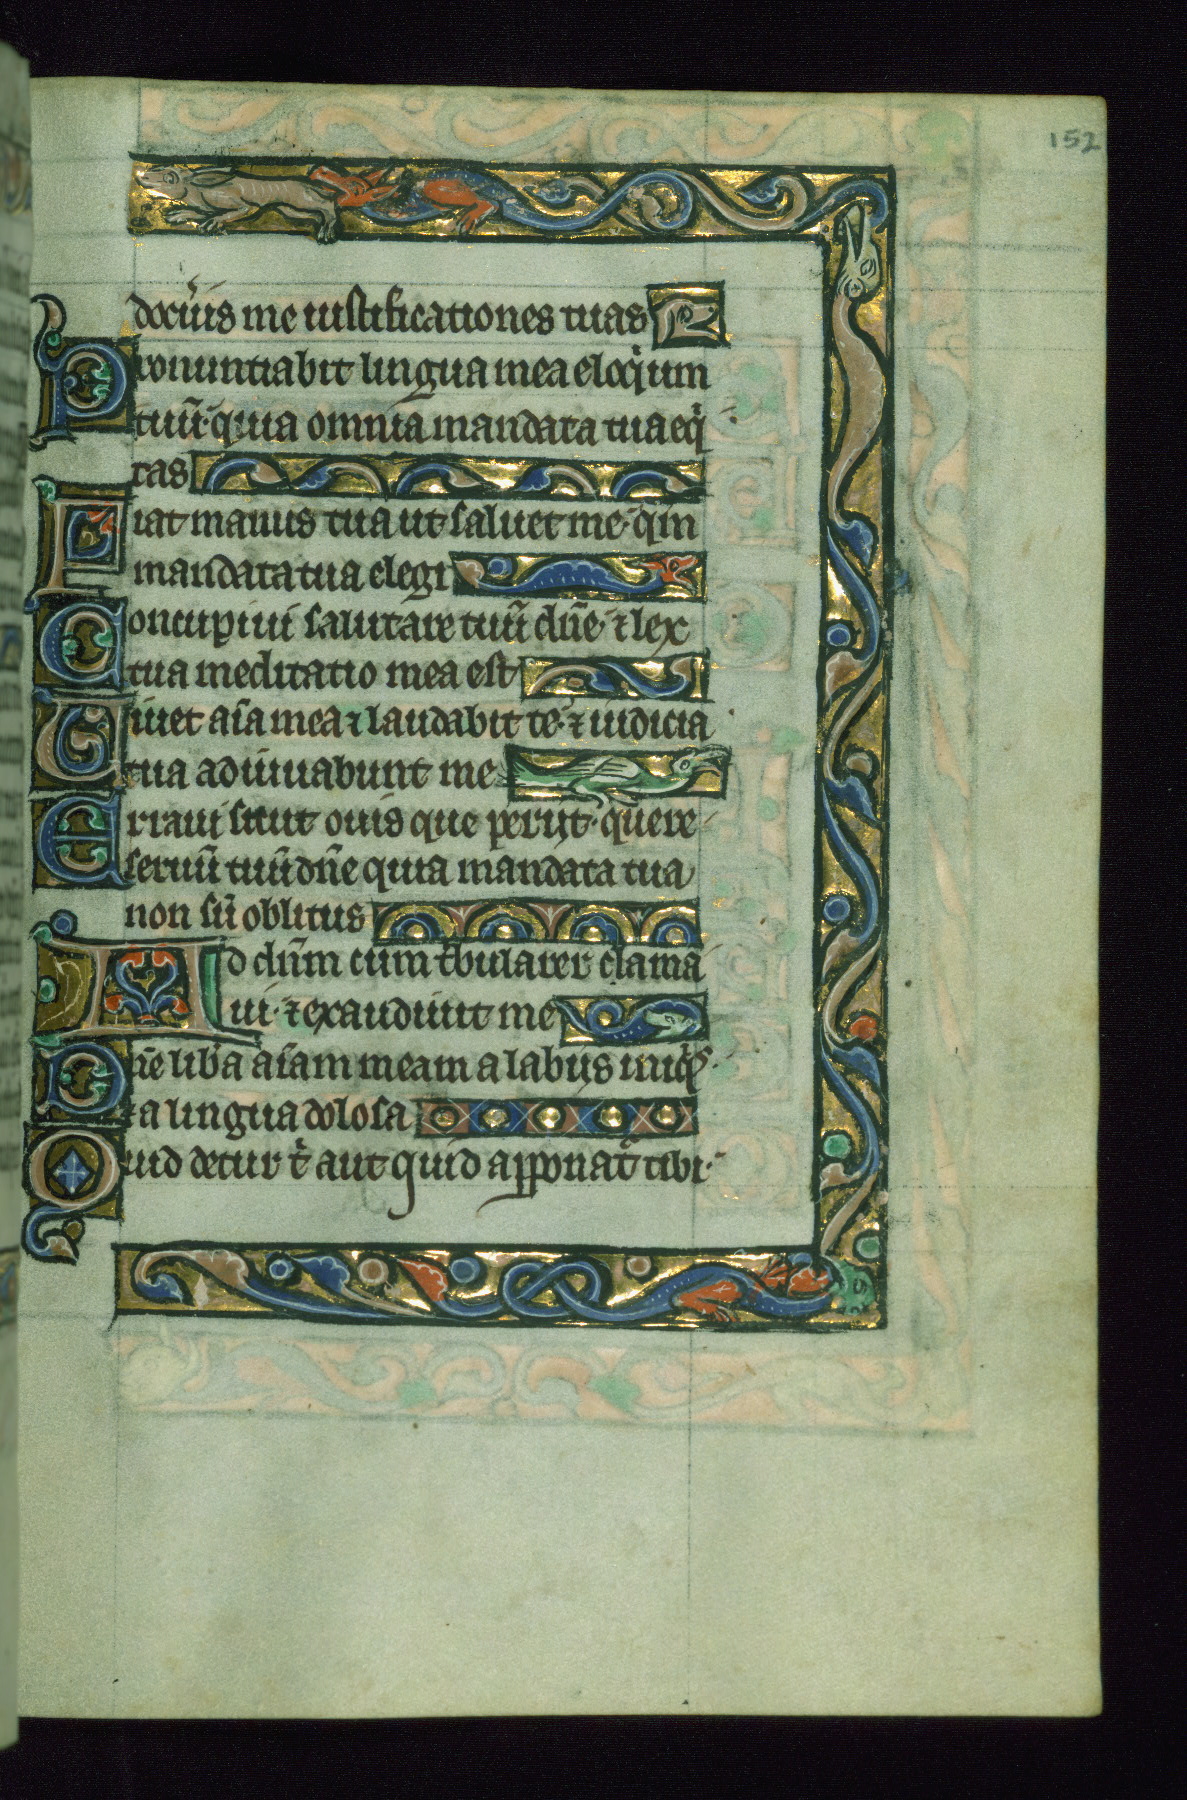 152
docu̾is me iustificationes tuas
Pronuntiabit lingua mea eloq̾ium
tuū· quia omnia mandata tua eq̾
tas
Fiat manus tua ut saluet me· qm̄
mandata tua elegi
Concupiui salutare tuū dn̄e· ⁊ lex
tua meditatio mea est
Uiuet aīa mea ⁊ laudabit te· ⁊ iudicia
tua adiuuabunt me
Erraui sicut ouis que perijt· quere
seruū tuū dn̄e quia mandata tua
non sū oblitus
Ad dn̄m cum t̾bularer clama
ui· ⁊ exaudiuit me
Dn̄e lib̾a aīam meam a labijs iniq̾s·
⁊ a lingua dolosa
Quid detur t̾ aut quid apponat̾ tibi·